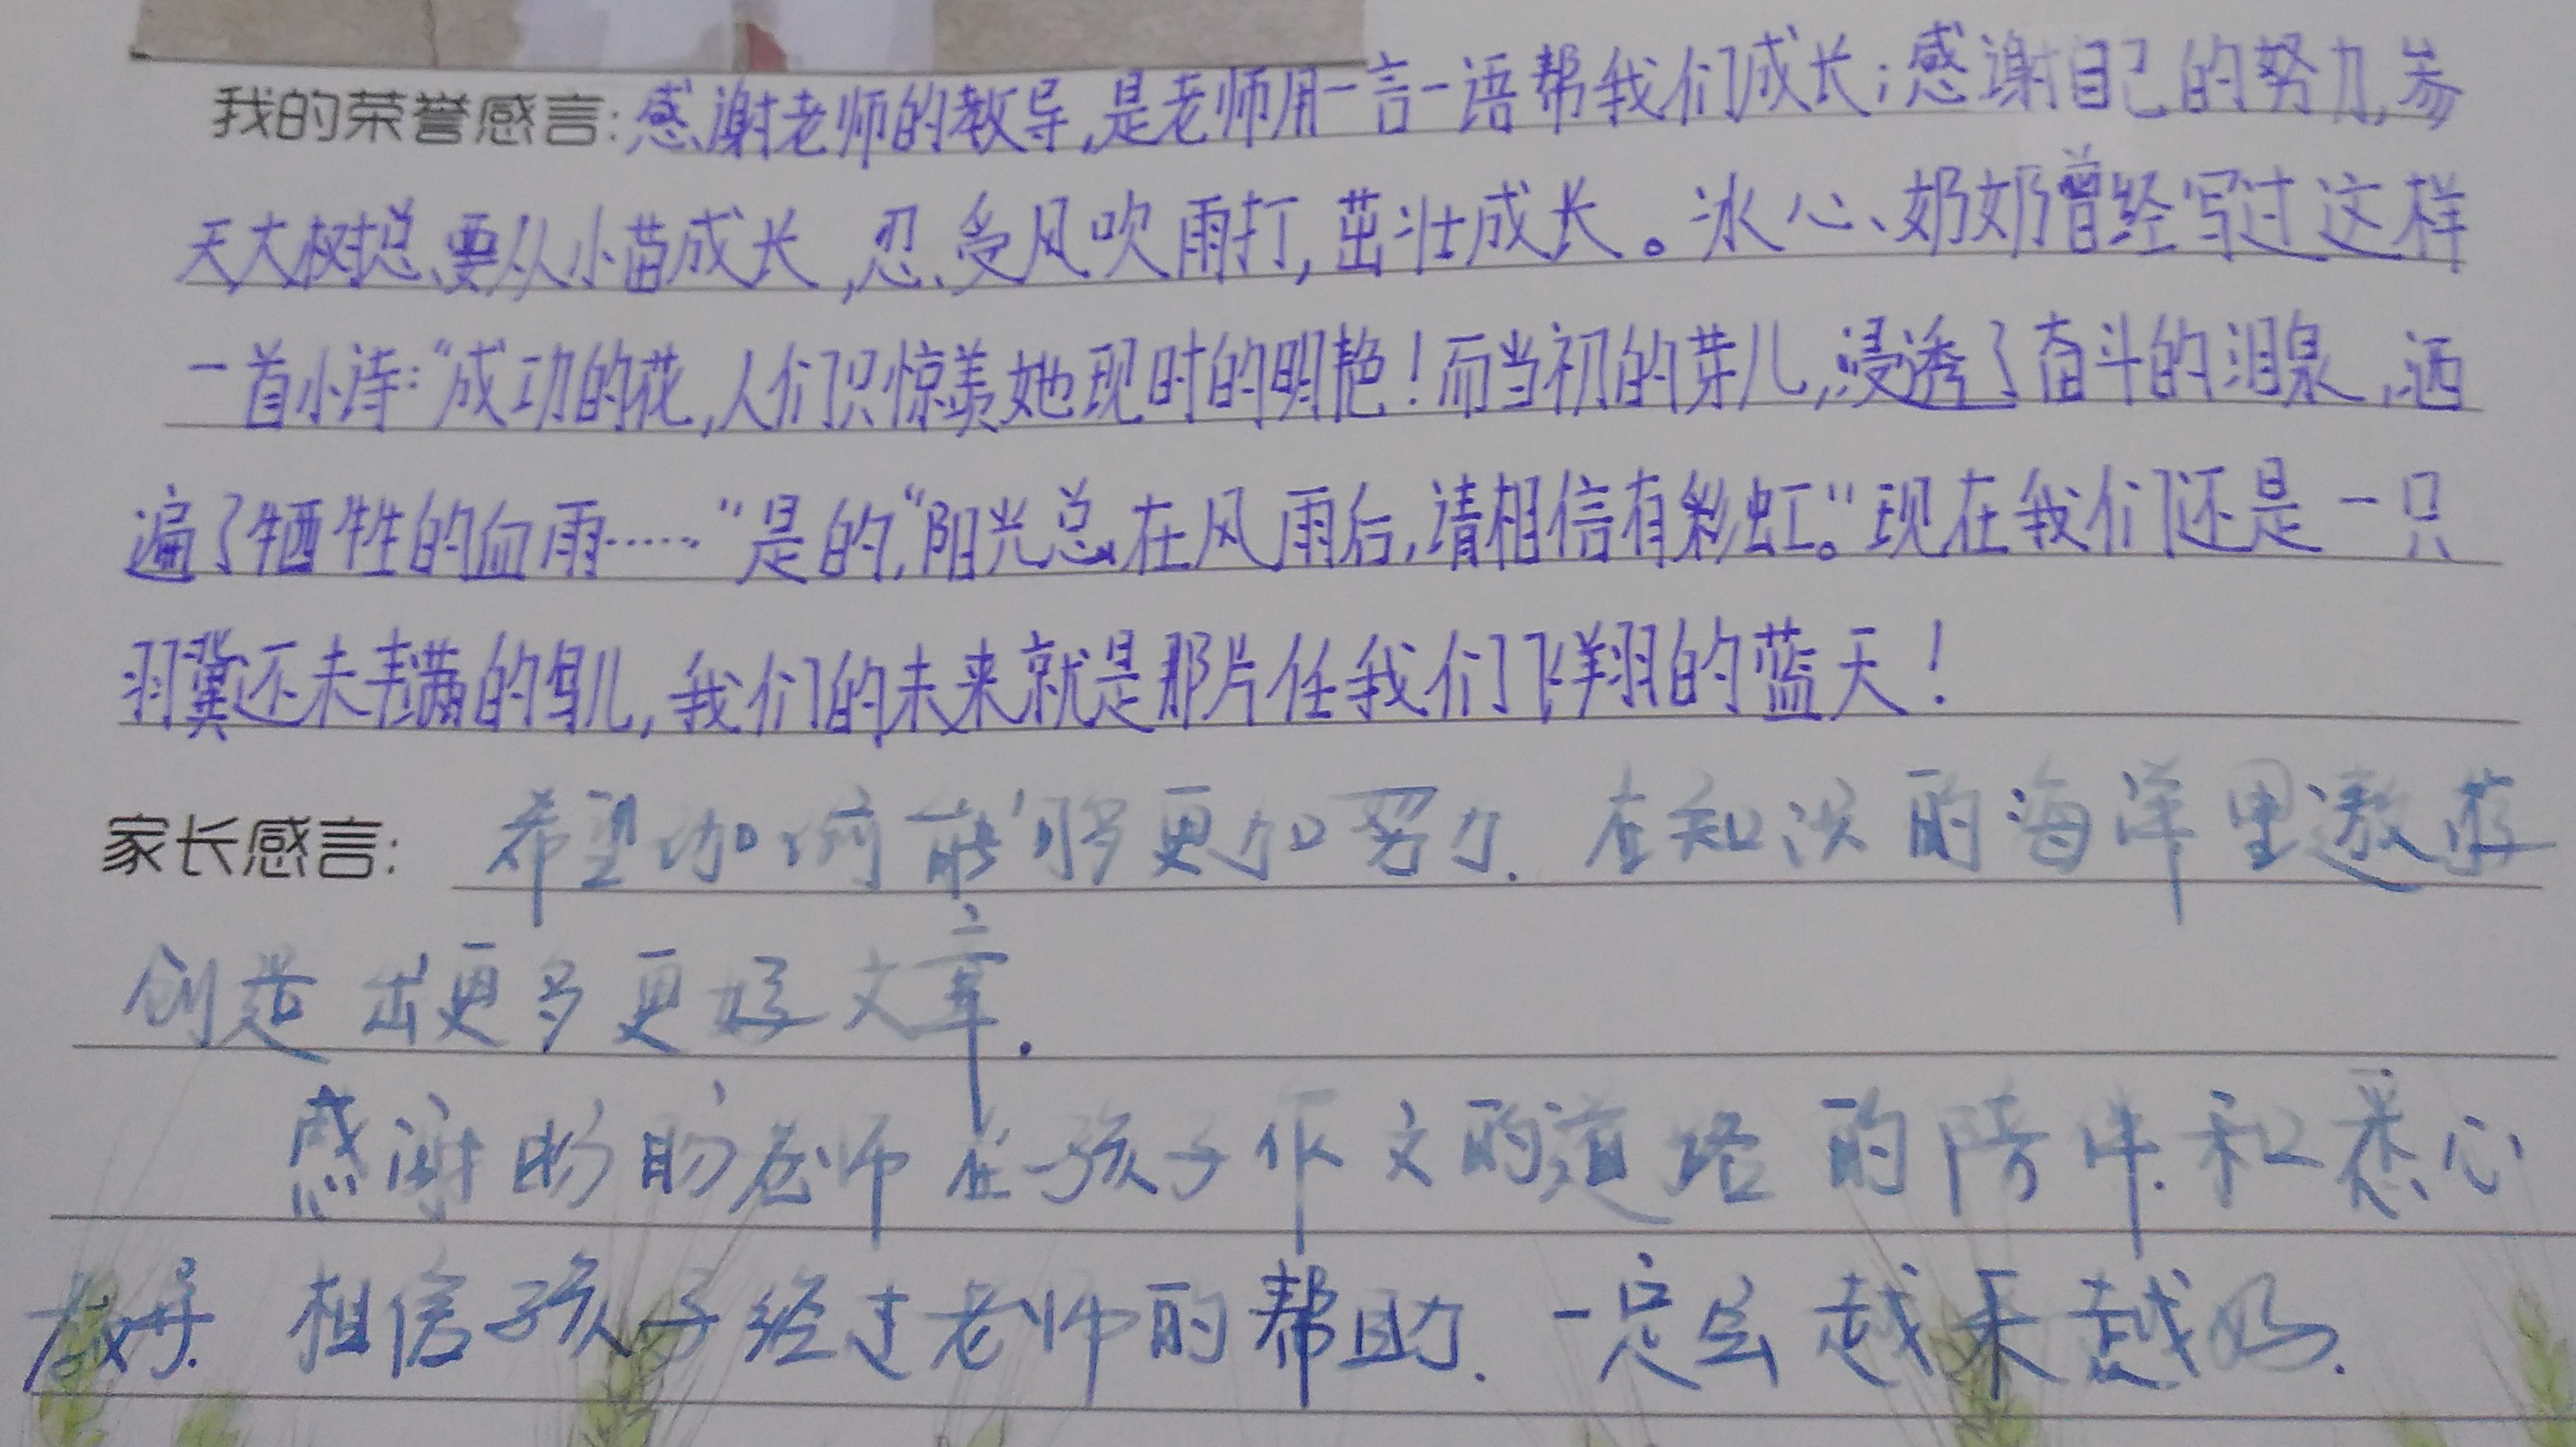 我的荣誉感言:感谢老师的教导,是老师用一言一语帮我们成长;感谢自己的努力,参
天大树总要从小苗成长,忍受风吹雨打,茁壮成长。冰心奶奶曾经写过这样
一首小诗:“成功的花,人们只惊羡她现时的明艳!而当初的芽儿,浸透了奋斗的泪泉,洒
遍了牺牲的血雨……”是的,“阳光总在风雨后,请相信有彩虹。”现在我们还是一只
羽翼还未丰满的鸟儿,我们的未来就是那片任我们飞翔的蓝天!
家长感言: 希望能够更加努力.在知识的海洋里遨游
创造出更多更好文章.
感谢盼盼老师在孩子作文的道路的陪伴.和悉心
教导.相信孩子经过老师的帮助.一定会越来越好.